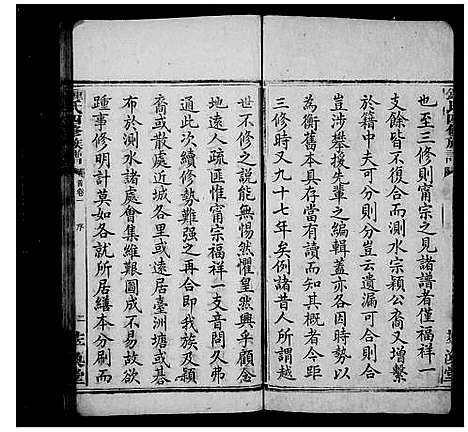 也至三修則甯宗之見諸譜者僅福祥一
支餘皆不復合而測水宗穎公裔又增繫
於籍中夫可分則分豈云遺漏可合則合
豈涉攀援先輩之編輯蓋亦各因時勢以
為衡舊本具存當有讀而知其概者今距
三修時又九十七年矣例諸昔人所謂越
世不修之說能無惕然懼皇然興乎顧念
地遠人疏匪惟甯宗福祥一支音問久弗
通此次續修勢難强之再合即我族及穎
裔或散處近城各里或遠居臺洲塘或碁
布於測水諸處會集維艱圖成不易故欲
踵事修明計莫如各就所居繕本分刷而
氏四修族
卷一
序